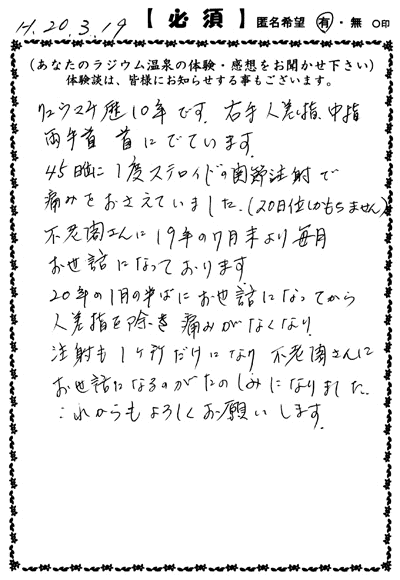 H.20.3.19 【必須】 匿名希望 有・無 ○印
(あなたのラジウム温泉の体験・感想をお聞かせ下さい)
体験談は、皆様にお知らせする事もございます。
リュウマチ歴10年です。右手人差指、中指
両手首 首にでています。
45日に1度ステロイドの関節注射で
痛みをおさえていました。(20日位しかもちません)
不老閣さんに19年の7月末より毎月
お世話になっております
20年の1月の半ばにお世話になってから
人差指を除き痛みがなくなり
注射も1ヶ所だけになり 不老閣さんに
お世話になるのがたのしみになりました。
これからもよろしくお願いします。